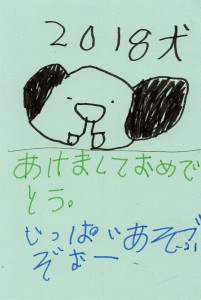 2018犬
あけましておめで
とう。
いっぱいあそぶ
ぞむー